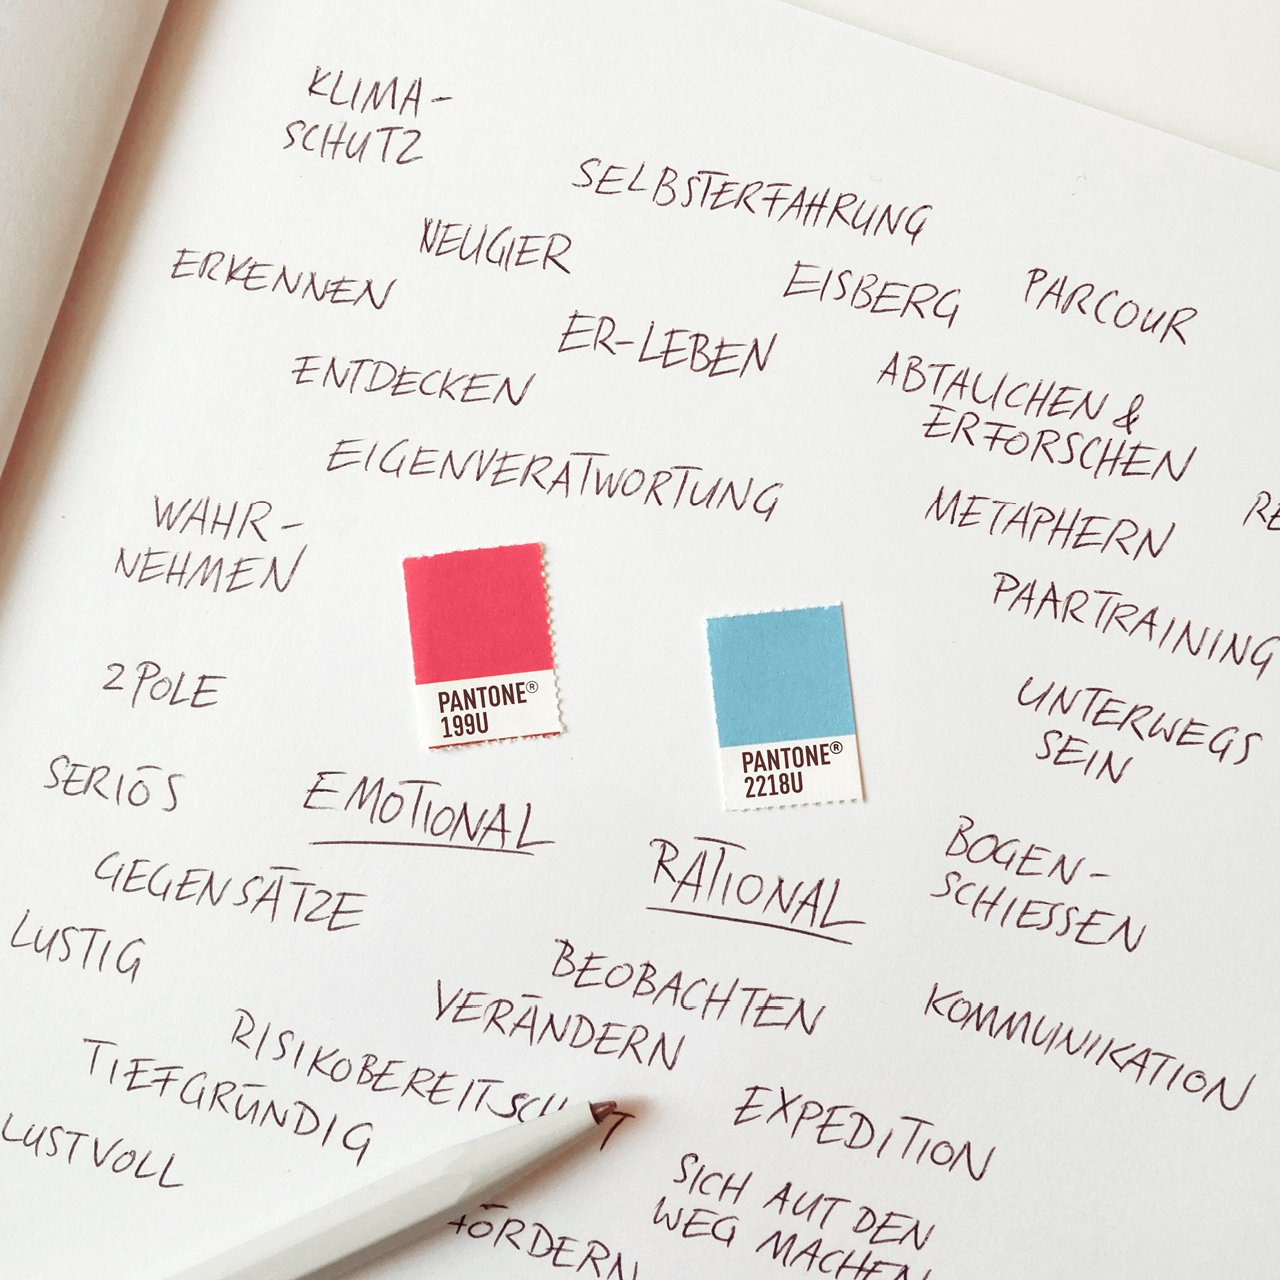 KLIMA-
SCHUTZ
SELBSTERFAHRUNG
NEUGIER
ERKENNEN
EISBERG
PARCOUR
ER-LEBEN
ENTDECKEN
ABTAUCHEN &
ERFORSCHEN
EIGENVERATWORTUNG
WAHR-
NEHMEN
METAPHERN
PAARTRAINING
PANTONE®
199U
PANTONE®
2218U
2 POLE
UNTERWEGS
SEIN
SERIÖS
EMOTIONAL
RATIONAL
BOGEN-
SCHIESSEN
GEGENSÄTZE
LUSTIG
BEOBACHTEN
VERÄNDERN
KOMMUNIKATION
RISIKOBEREITSCHAFT
TIEFGRÜNDIG
LUSTVOLL
EXPEDITION
SICH AUF DEN
WEG MACHEN